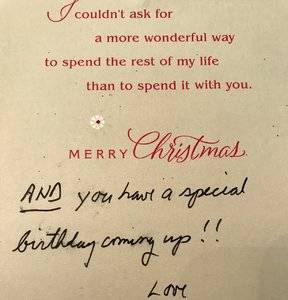 I couldn't ask for
a more wonderful way
to spend the rest of my life
than to spend it with you.
MERRY Christmas.
AND you have a special
birthday coming up!!
Love